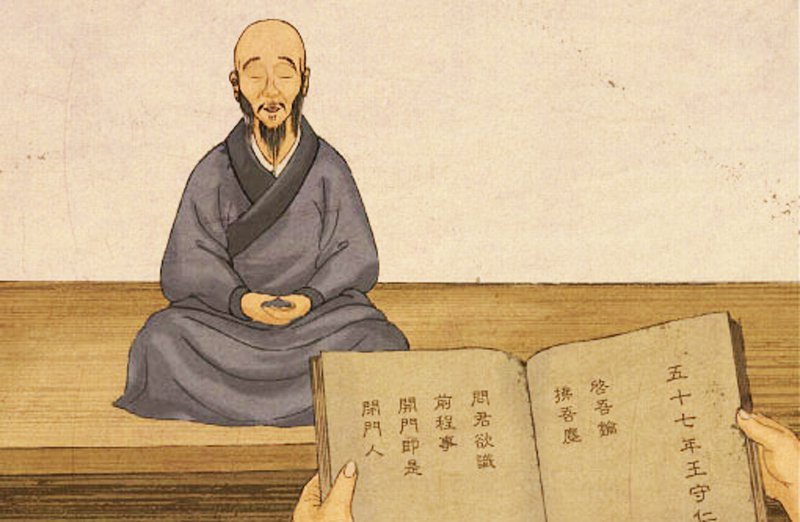 五十七年王守仁
啓吾鑰
拂吾塵
問君欲識
前程事
開門即是
閉門人